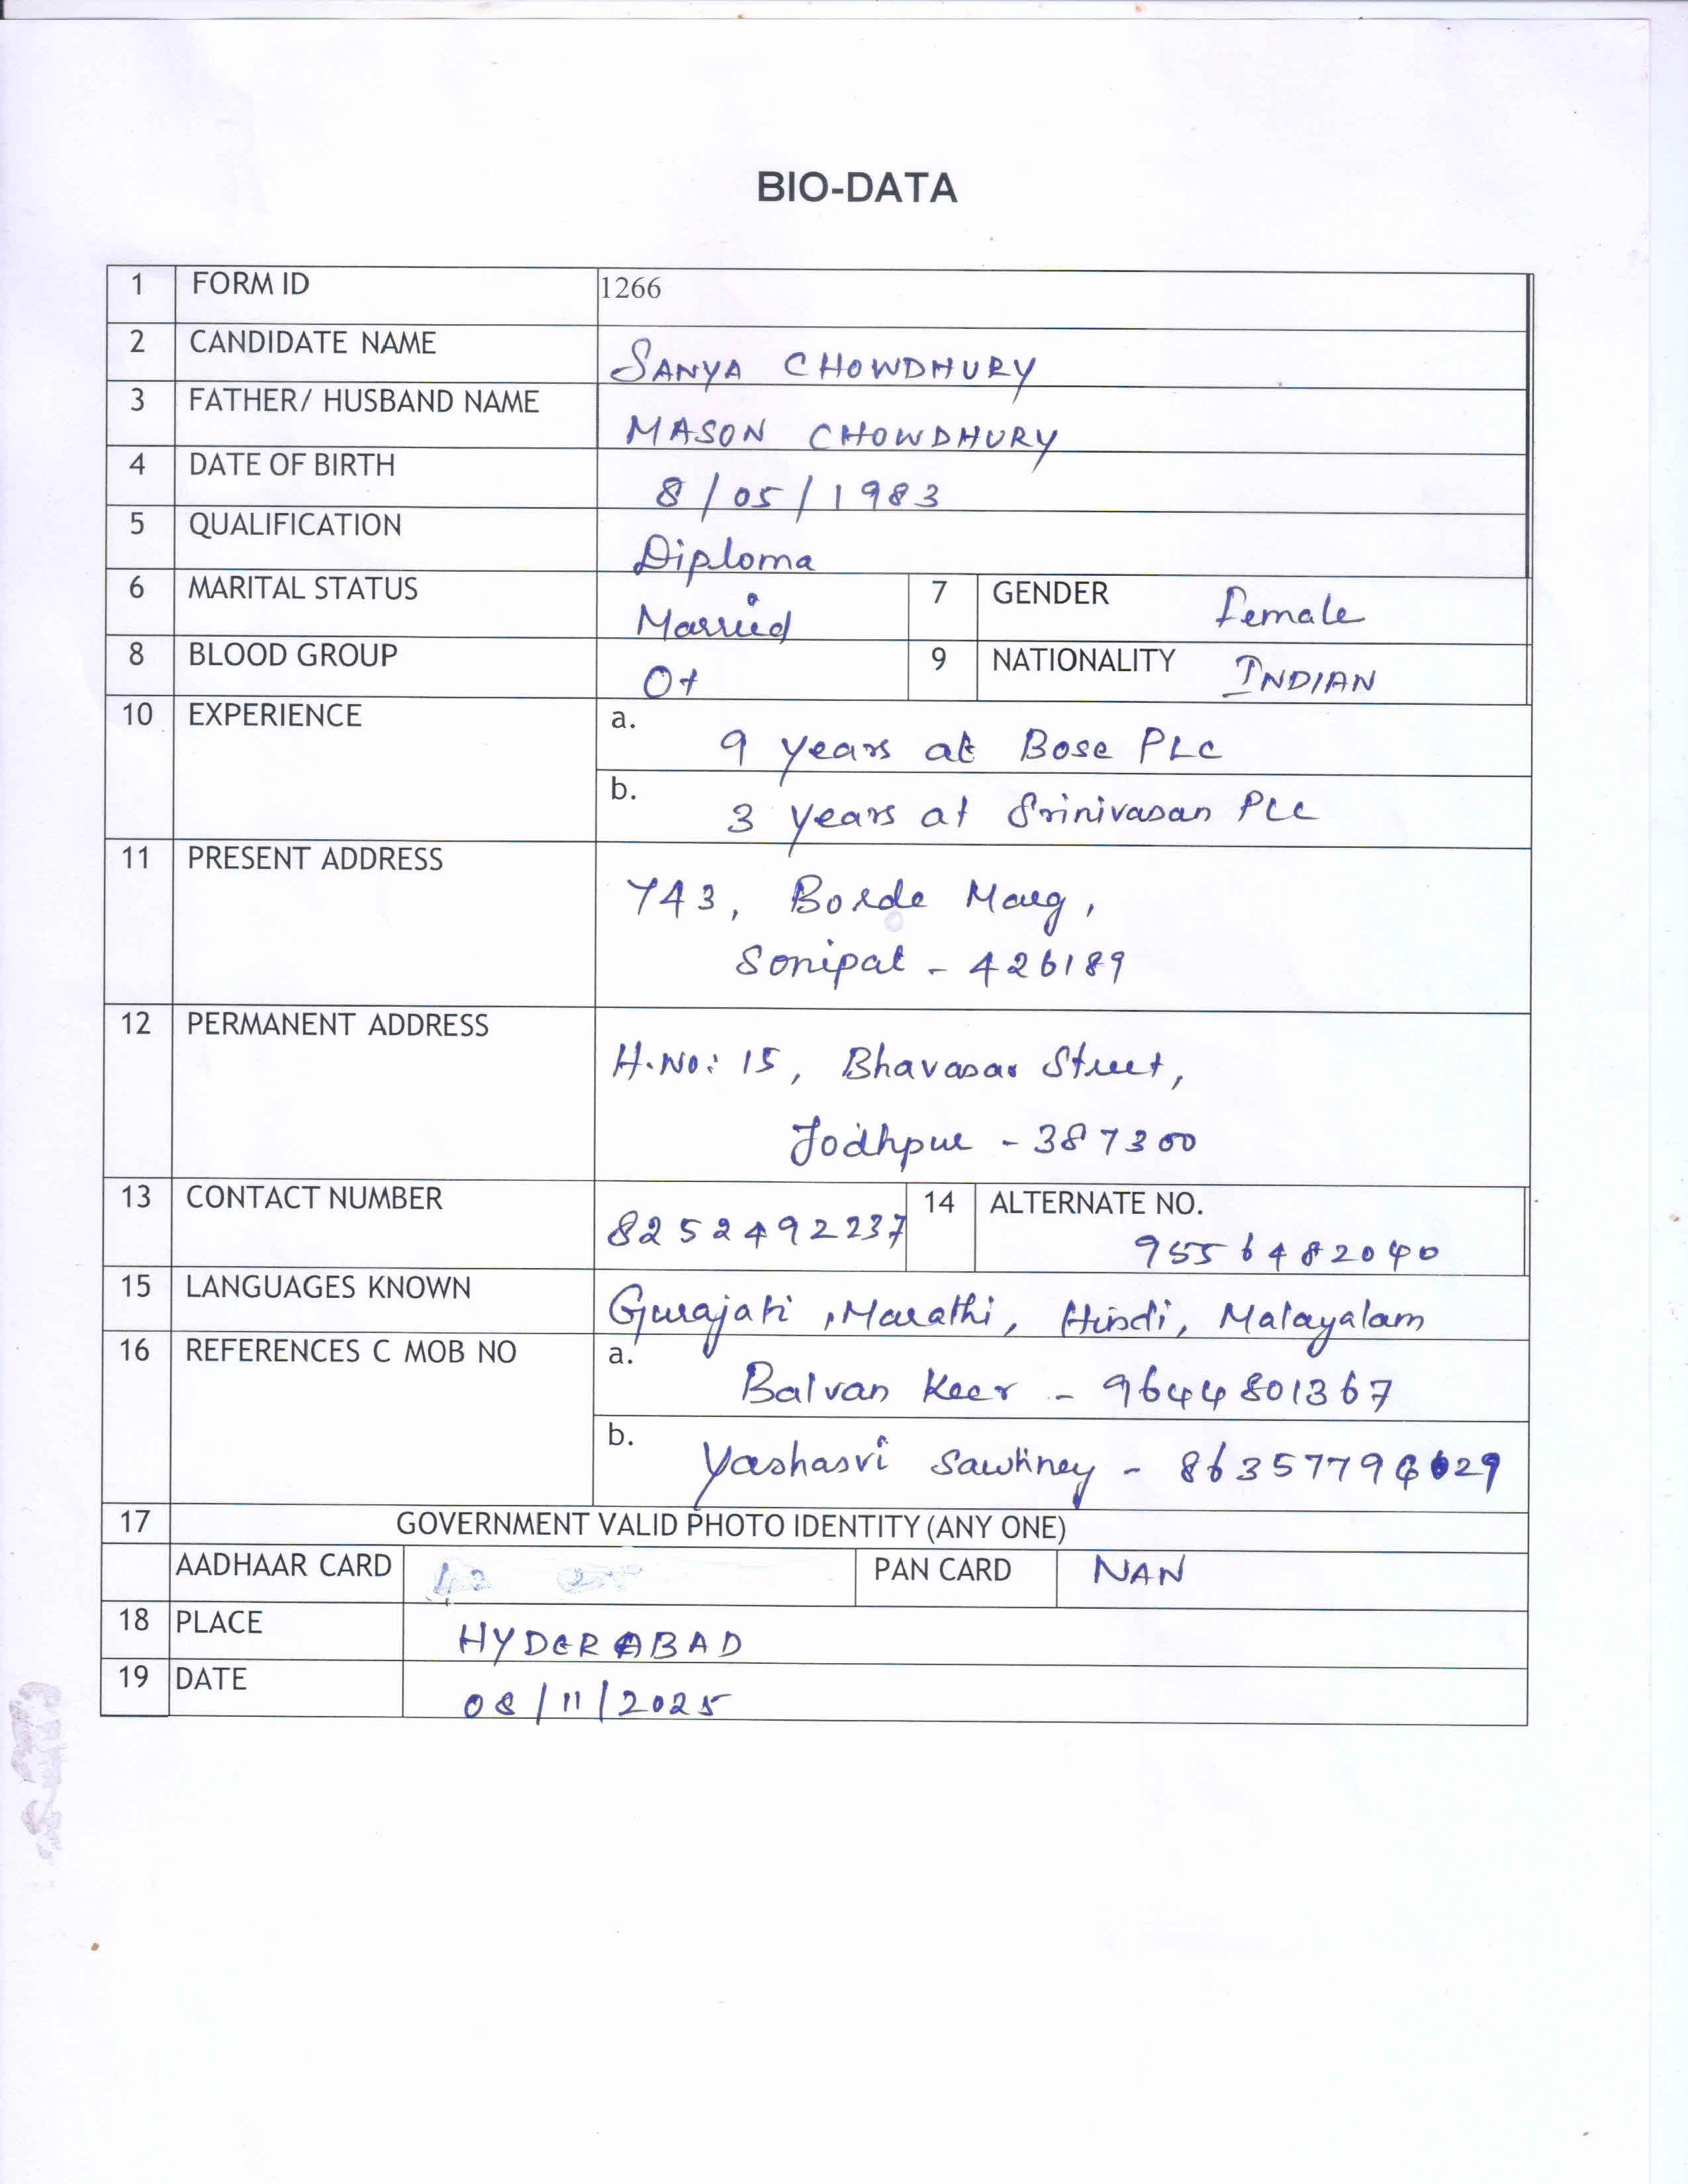 BIO-DATA
1 FORM ID 1266
2 CANDIDATE NAME SANYA CHOWDHURY
3 FATHER/ HUSBAND NAME MASON CHOWDHURY
4 DATE OF BIRTH 8/05/1983
5 QUALIFICATION Diploma
6 MARITAL STATUS Married 7 GENDER Female
8 BLOOD GROUP O+ 9 NATIONALITY INDIAN
10 EXPERIENCE a. 9 years at Bose PLC
b. 3 years at Srinivasan PLC
11 PRESENT ADDRESS 743, Borde Marg,
Sonipat - 426189
12 PERMANENT ADDRESS H.No: 15, Bhavasar Street,
Jodhpur - 387300
13 CONTACT NUMBER 8252492237 14 ALTERNATE NO.
9556482040
15 LANGUAGES KNOWN Gurajati, Marathi, Hindi, Malayalam
16 REFERENCES C MOB NO a. Balvan Keer - 9644801367
b. Yashasvi Sawhney -
17 GOVERNMENT VALID PHOTO IDENTITY (ANY ONE)
AADHAAR CARD PAN CARD NAN
18 PLACE HYDERABAD
19 DATE 08/11/2025